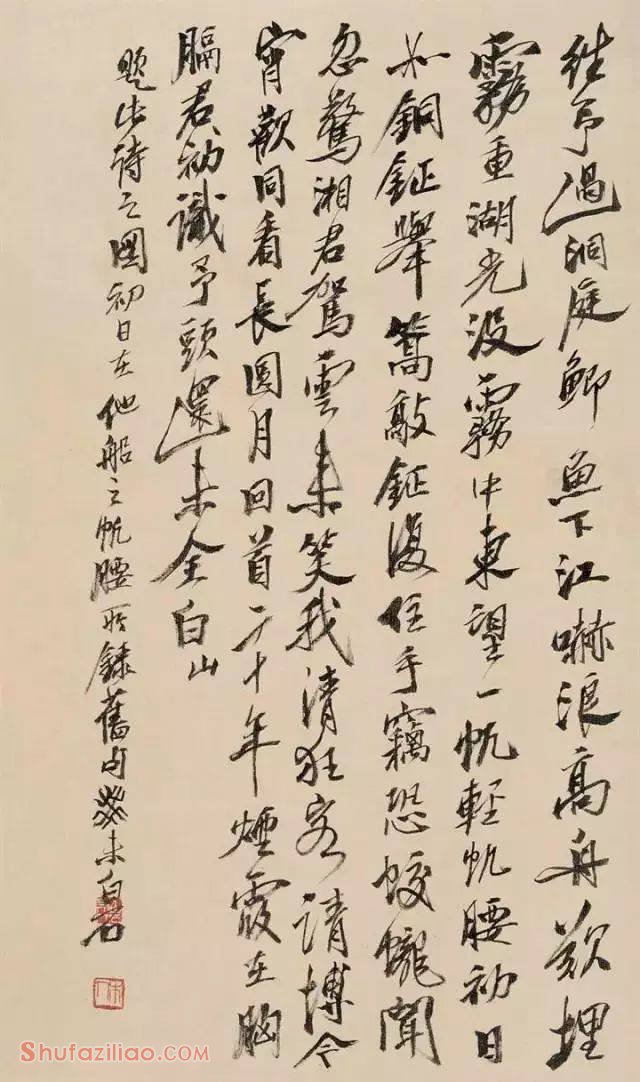 往予過洞庭鯽魚下江嚇浪高舟欲埋
霧重湖光沒霧中東望一帆輕帆腰初日
如銅鉦舉篙敲鉦復住手竊恐蛟龍聞
忽驚湘君駕雲來笑我清狂客請博今
宵歡同看長圓月回首二十年煙霞在胸
膈君初識予頭還未全白山
題此詩之圖初日在他船之帆腰所錄舊句癸未白石
Shufaziliao.com